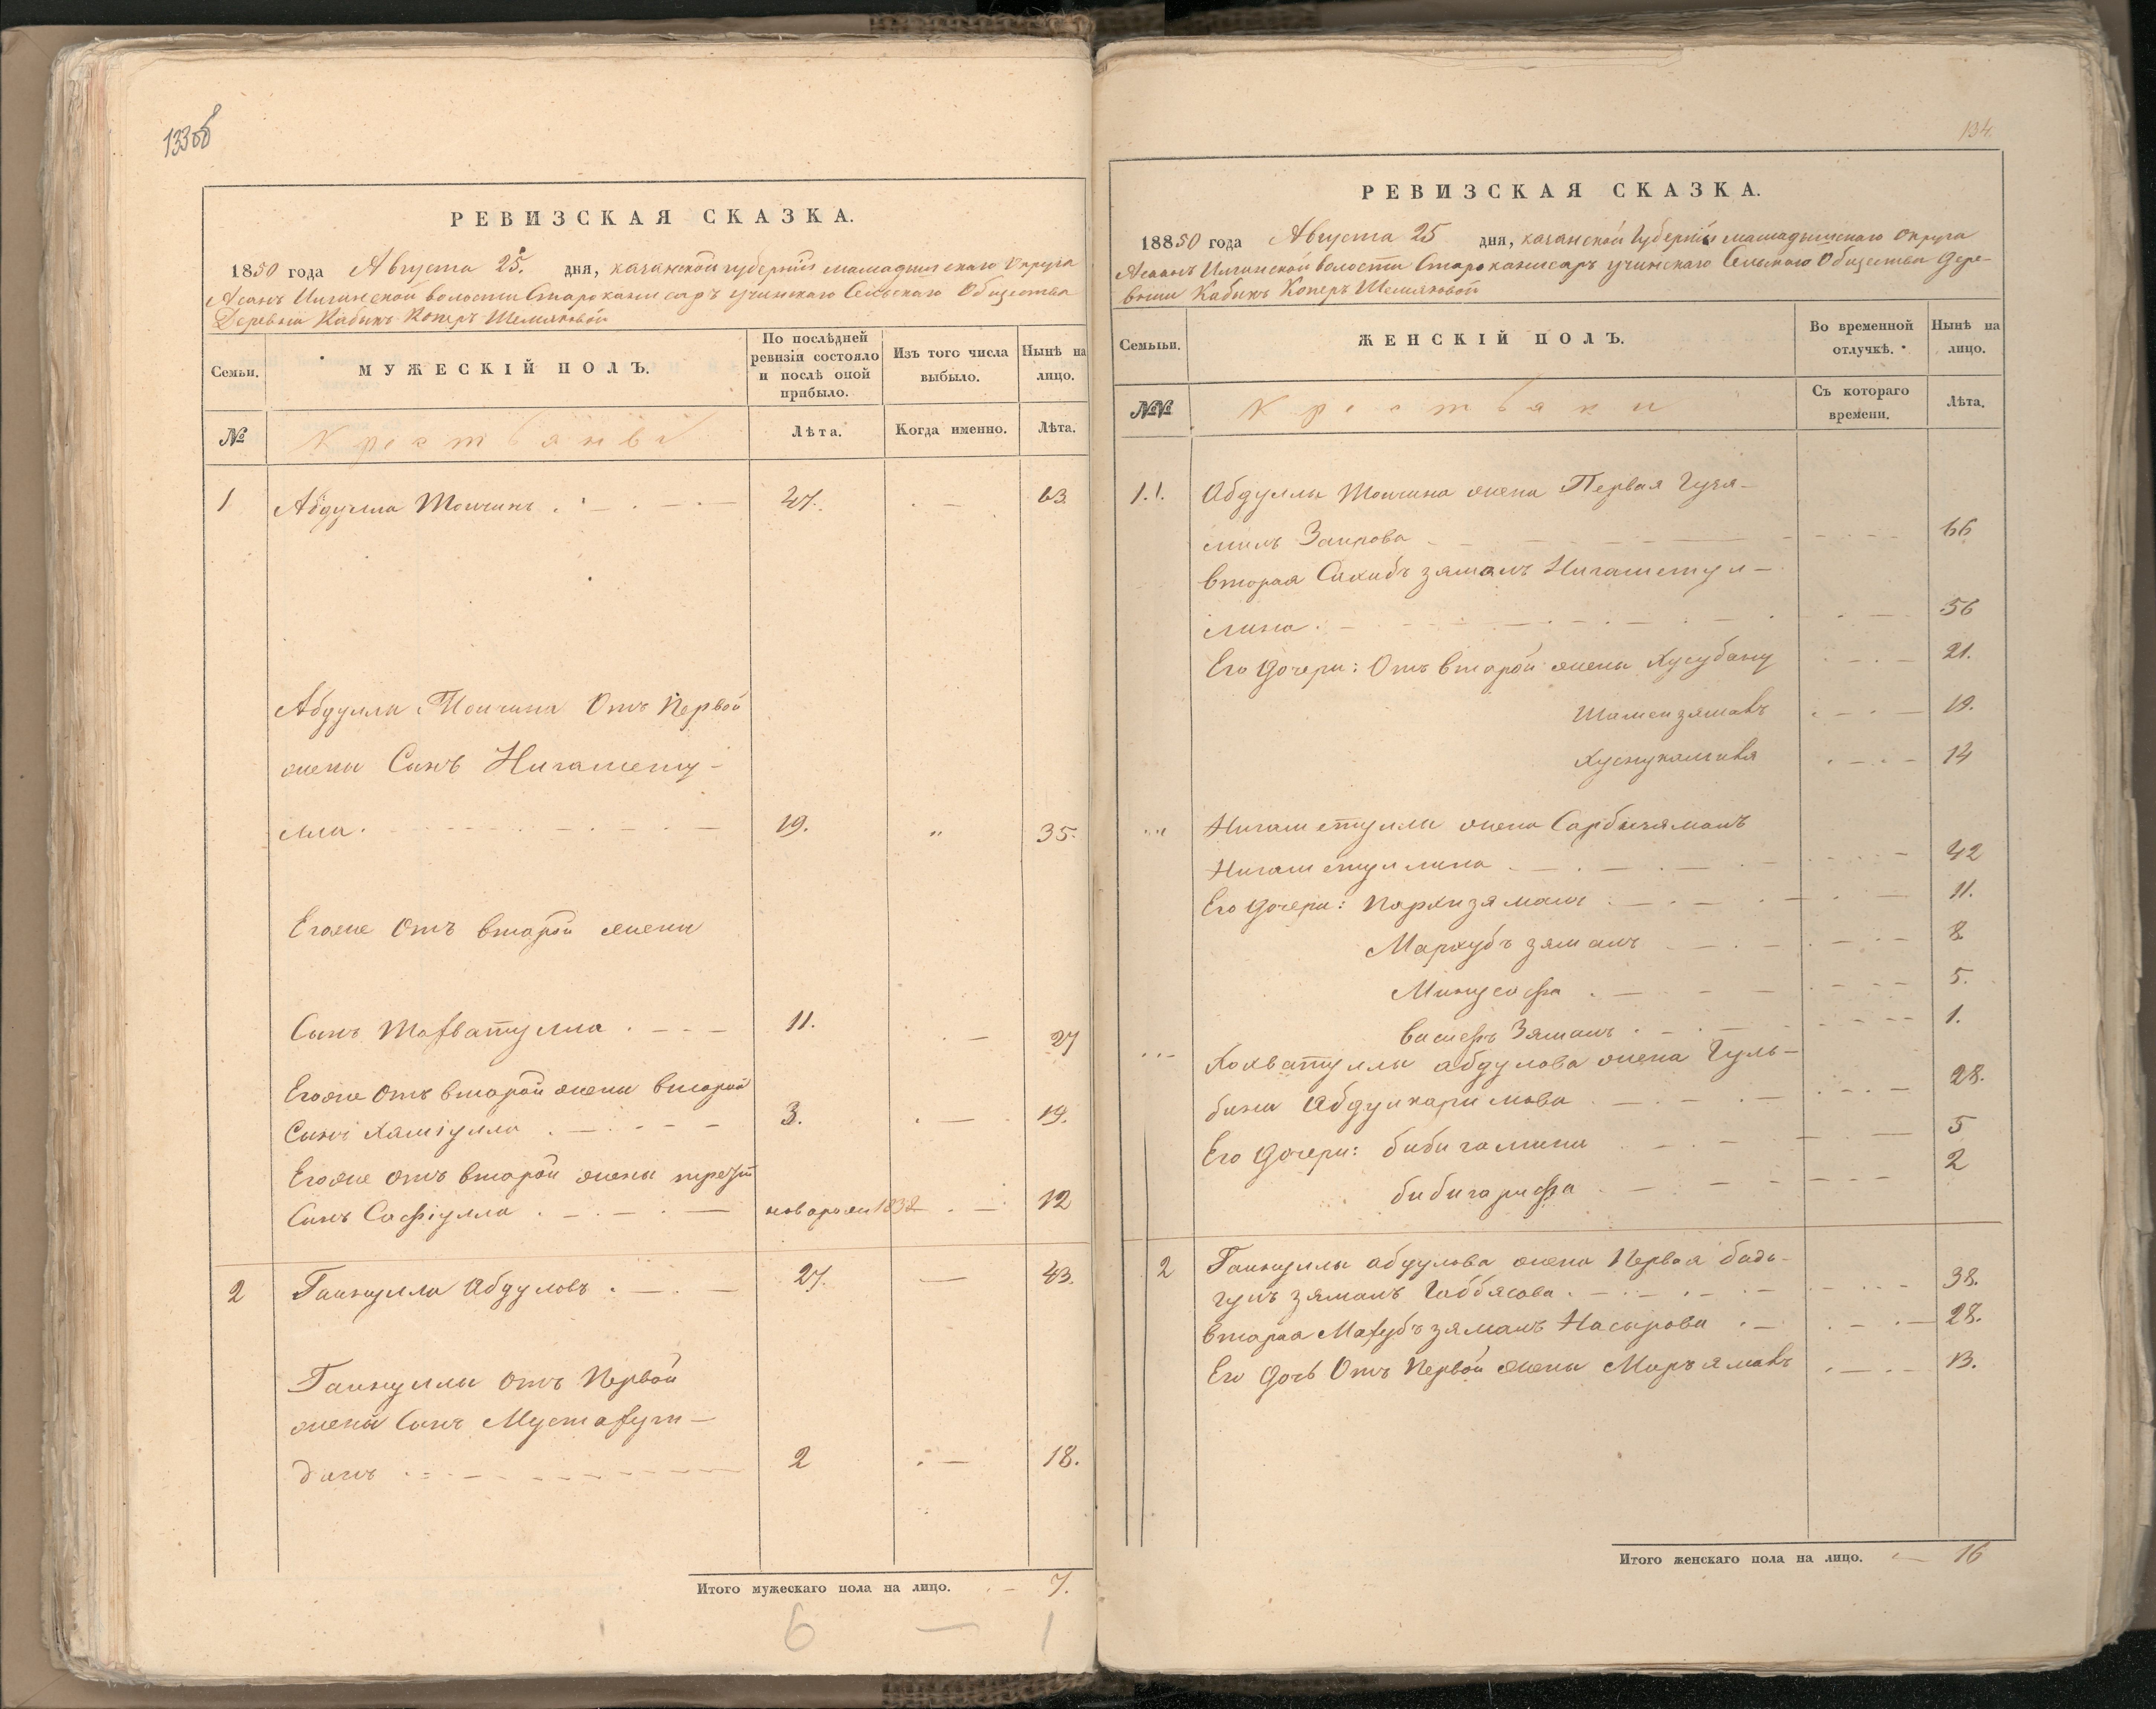 133об
РЕВИЗСКАЯ СКАЗКА.
1850 года Августа 25. дня, казанской губернiи мамадышскаго округа
Асанъ Илгинской волости Старо камисаръ учинскаго Сельскаго Общества
Деревни Кабыкъ Коперъ Шемяковой
Семьи.
МУЖЕСКІЙ ПОЛЪ.
По послѣдней ревизіи состояло и послѣ оной прибыло.
Изъ того числа выбыло.
Нынѣ на лицо.
№
Крестьяне
Лѣта.
Когда именно.
Лѣта.
1 Абдулла Моичинъ 47. — 63
Абдуллы Моичина Отъ Первой
жены Сынъ Нигамету-
лла. 19. „ 35.
Егоже Отъ второй жены
Сынъ 11. — 27
Егоже Отъ второй жены второй
Сынъ Хамiулла 3. — 19.
Егоже отъ второй жены третiй
Сынъ Сафiулла новорож 1838 — 12
2 Гайнулла Абдуловъ 27. — 43.
Гайнуллы Отъ Первой
жены Сынъ
динъ 2 — 18.
Итого мужескаго пола на лицо. — 7.
6 — 1
134.
РЕВИЗСКАЯ СКАЗКА.
18850 года Августа 25 дня, казанской Губернiи мамадышскаго округа
Асанъ Илгинской волости Старо камисаръ учинскаго Сельскаго Общества дере-
вни Кабыкъ Коперъ Шемяковой
Семьи.
ЖЕНСКІЙ ПОЛЪ.
Во временной отлучкѣ.
Нынѣ на лицо.
№№
Крестьянки
Съ котораго времени.
Лѣта.
1.1. Абдуллы Моичина жена Первая Гузя-
Заирова 66
вторая Сахибъ зямалъ Нигаметул-
лина 56
Его дочери: Отъ второй жены Хусубану 21.
19.
14
Нигаметуллы жена
Нигаметуллина 42
Его дочери: 11.
Мархубъ зямалъ 8
5.
Зямалъ 1.
абдулова жена Гуль-
бану Абдулкаримова 28.
Его дочери: биби 5
биби 2
2 Гайнуллы абдулова жена Первая бадь-
гулъ зямалъ Габбясова 38.
вторая зямалъ Насырова 28.
Его дочь Отъ Первой жены 13.
Итого женскаго пола на лицо. — 16